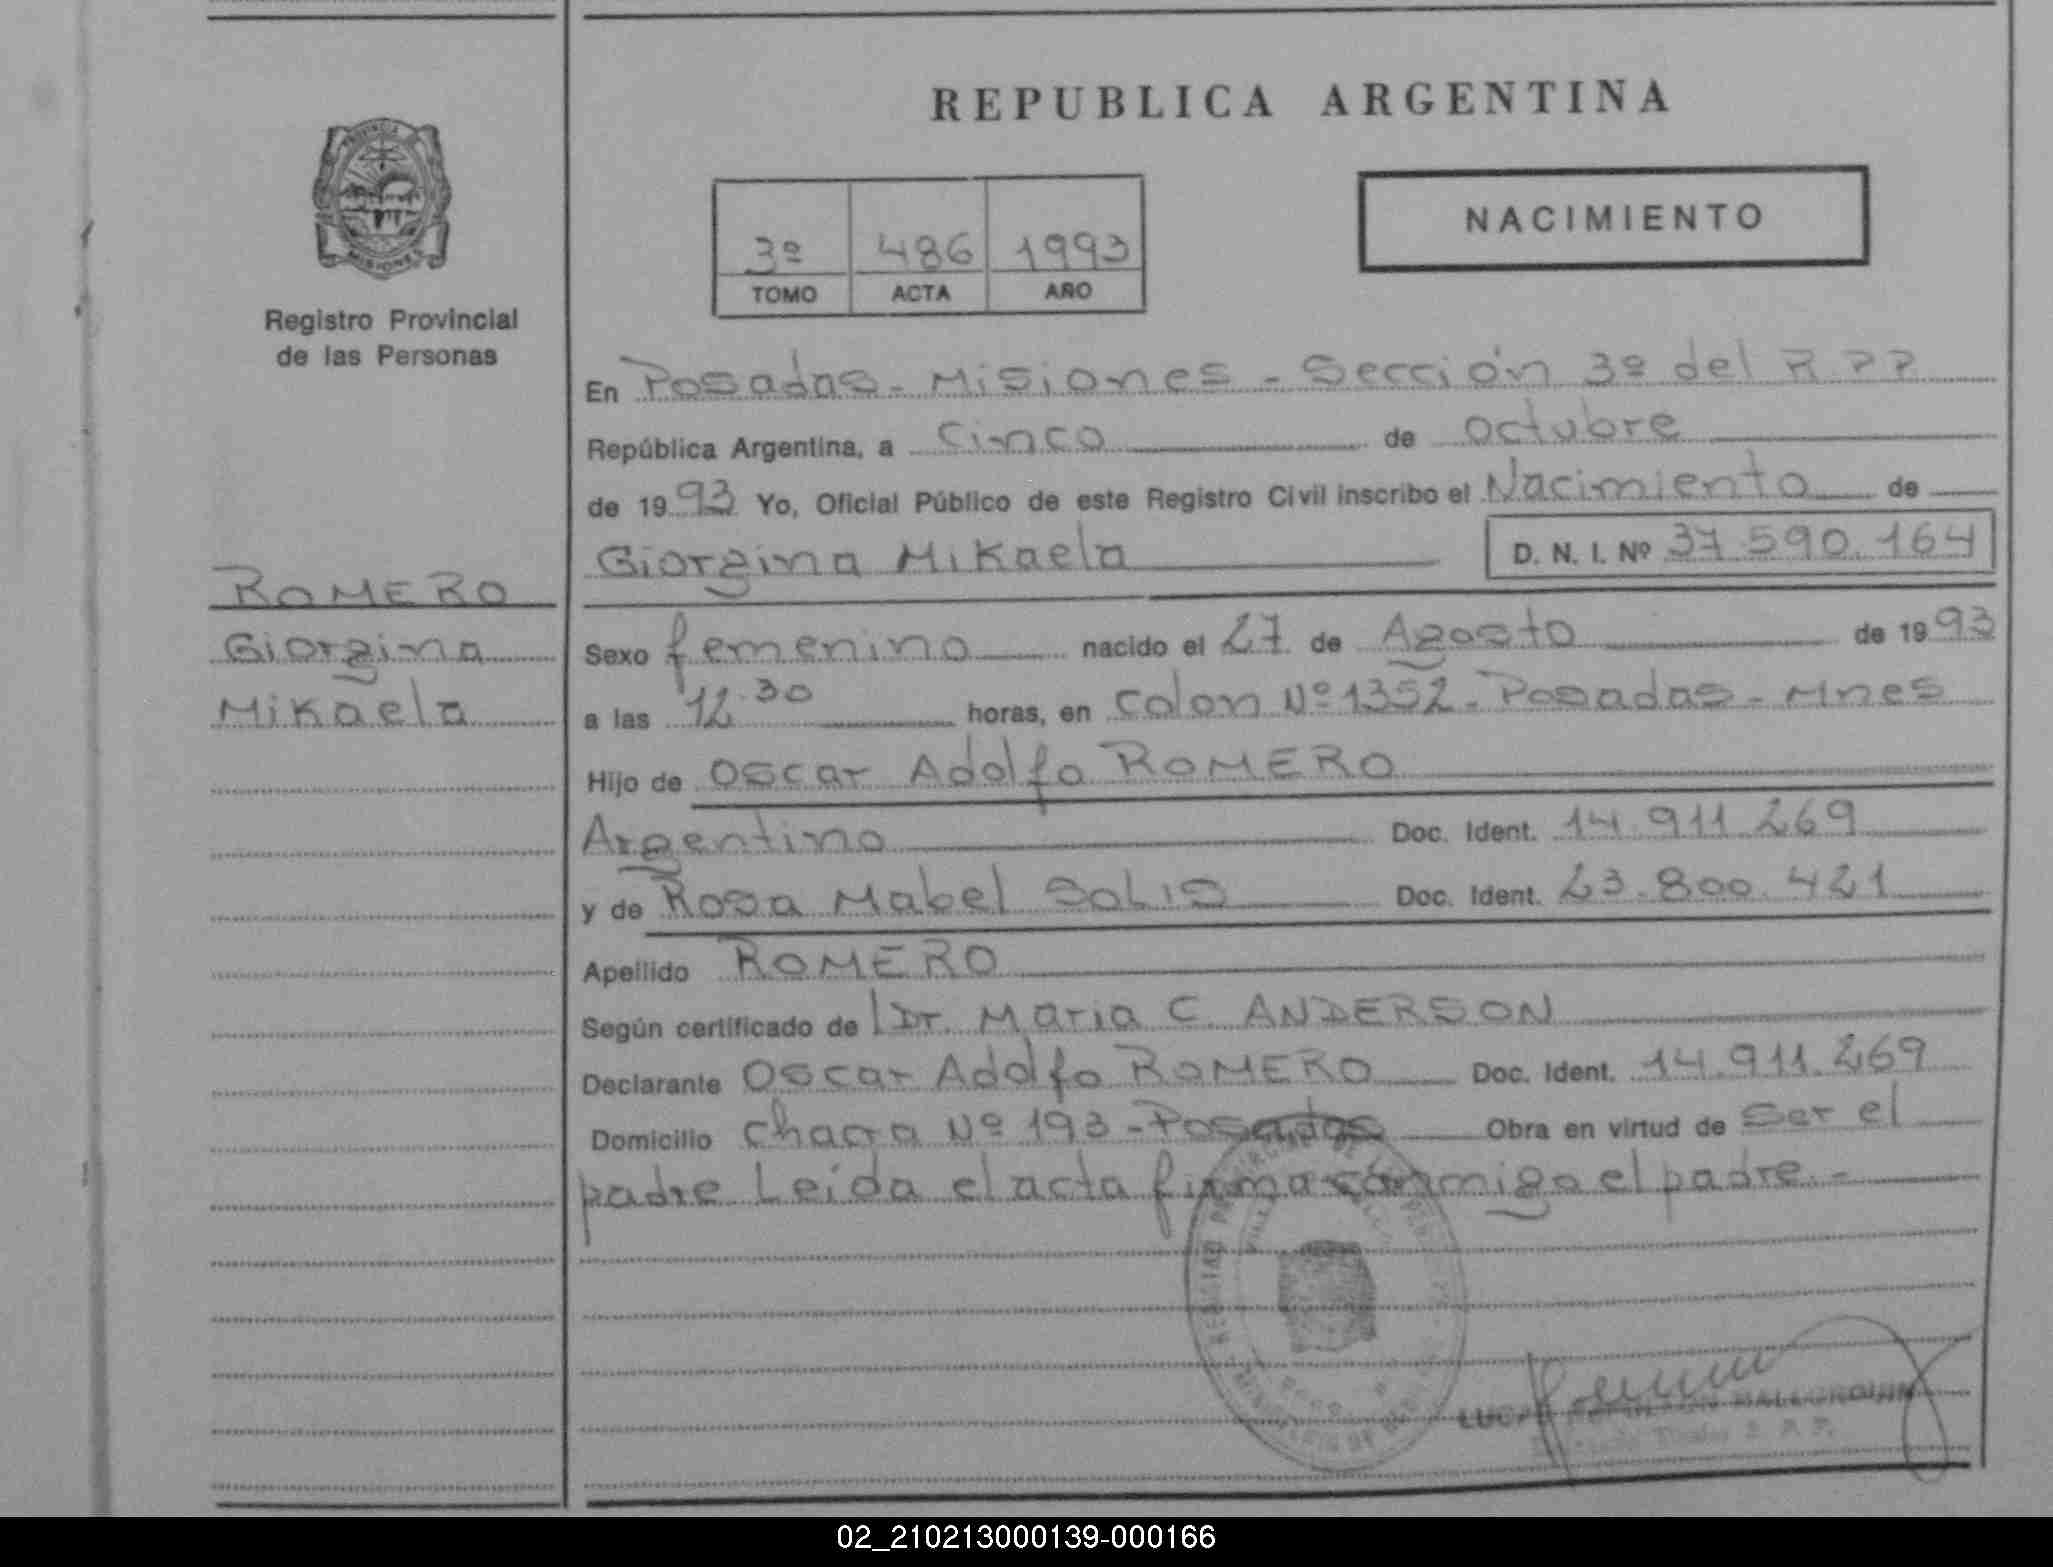 REPUBLICA ARGENTINA
PROVINCIA
MISIONES
Registro Provincial
de las Personas
3º 486 1993
TOMO ACTA AÑO
NACIMIENTO
En Posadas - Misiones - Sección 3º del R P P
República Argentina, a cinco de octubre
de 19 93 Yo, Oficial Público de este Registro Civil inscribo el Nacimiento de
Giorgina Mikaela D. N. I. Nº 37.590.164
ROMERO
Giorgina
Mikaela
Sexo femenino nacido el 27 de Agosto de 19 93
a las 12.30 horas, en Colon Nº 1352 - Posadas - Mnes
Hijo de Oscar Adolfo ROMERO
Argentino Doc. Ident. 14.911.269
y de Rosa Mabel SOLIS Doc. Ident. 23.800.421
Apellido ROMERO
Según certificado de Dr. Maria C. ANDERSON
Declarante Oscar Adolfo ROMERO Doc. Ident. 14.911.269
Domicilio Chacra Nº 193 - Posadas Obra en virtud de ser el
padre Leida el acta firma conmigo el padre. -
02_210213000139-000166